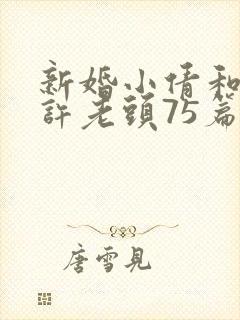 新婚小倩和
許老頭75篇
唐雪見